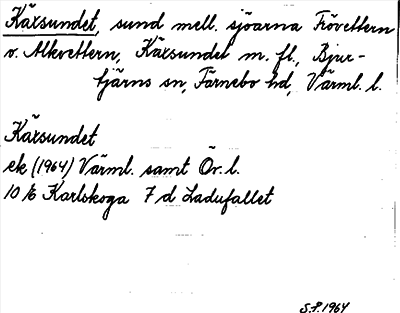 Käxsundet, sund mell. sjöarna Frövettern
o. Alkvettern, Käxsundet m. fl., Bjur-
tjärns sn, Färnebo hd, Värml. l.
Käxsundet
ek (1964) Värml. samt Ör. l.
10 E Karlskoga 7 d Ladufallet
S.F. 1964